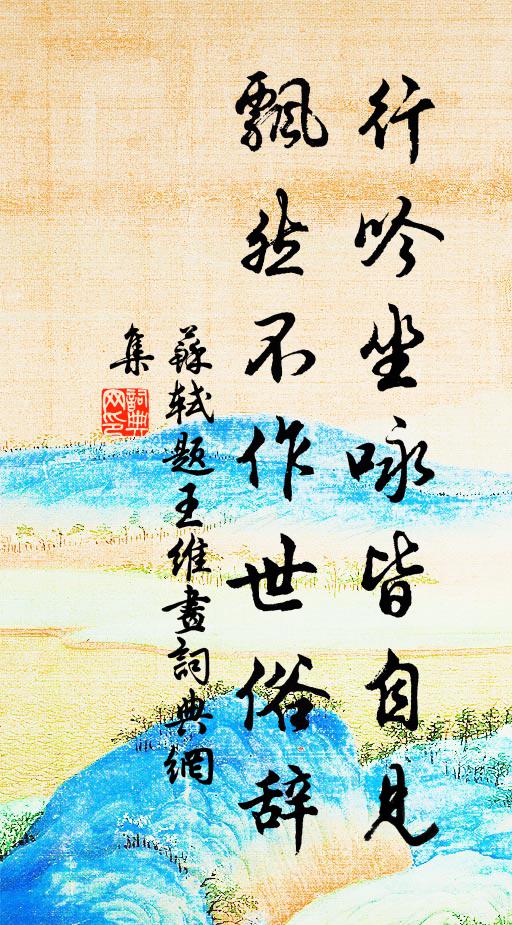 行吟坐咏皆自見
飄然不作世俗辞
蘇軾题王維畫詞典網
集
詞典
网印